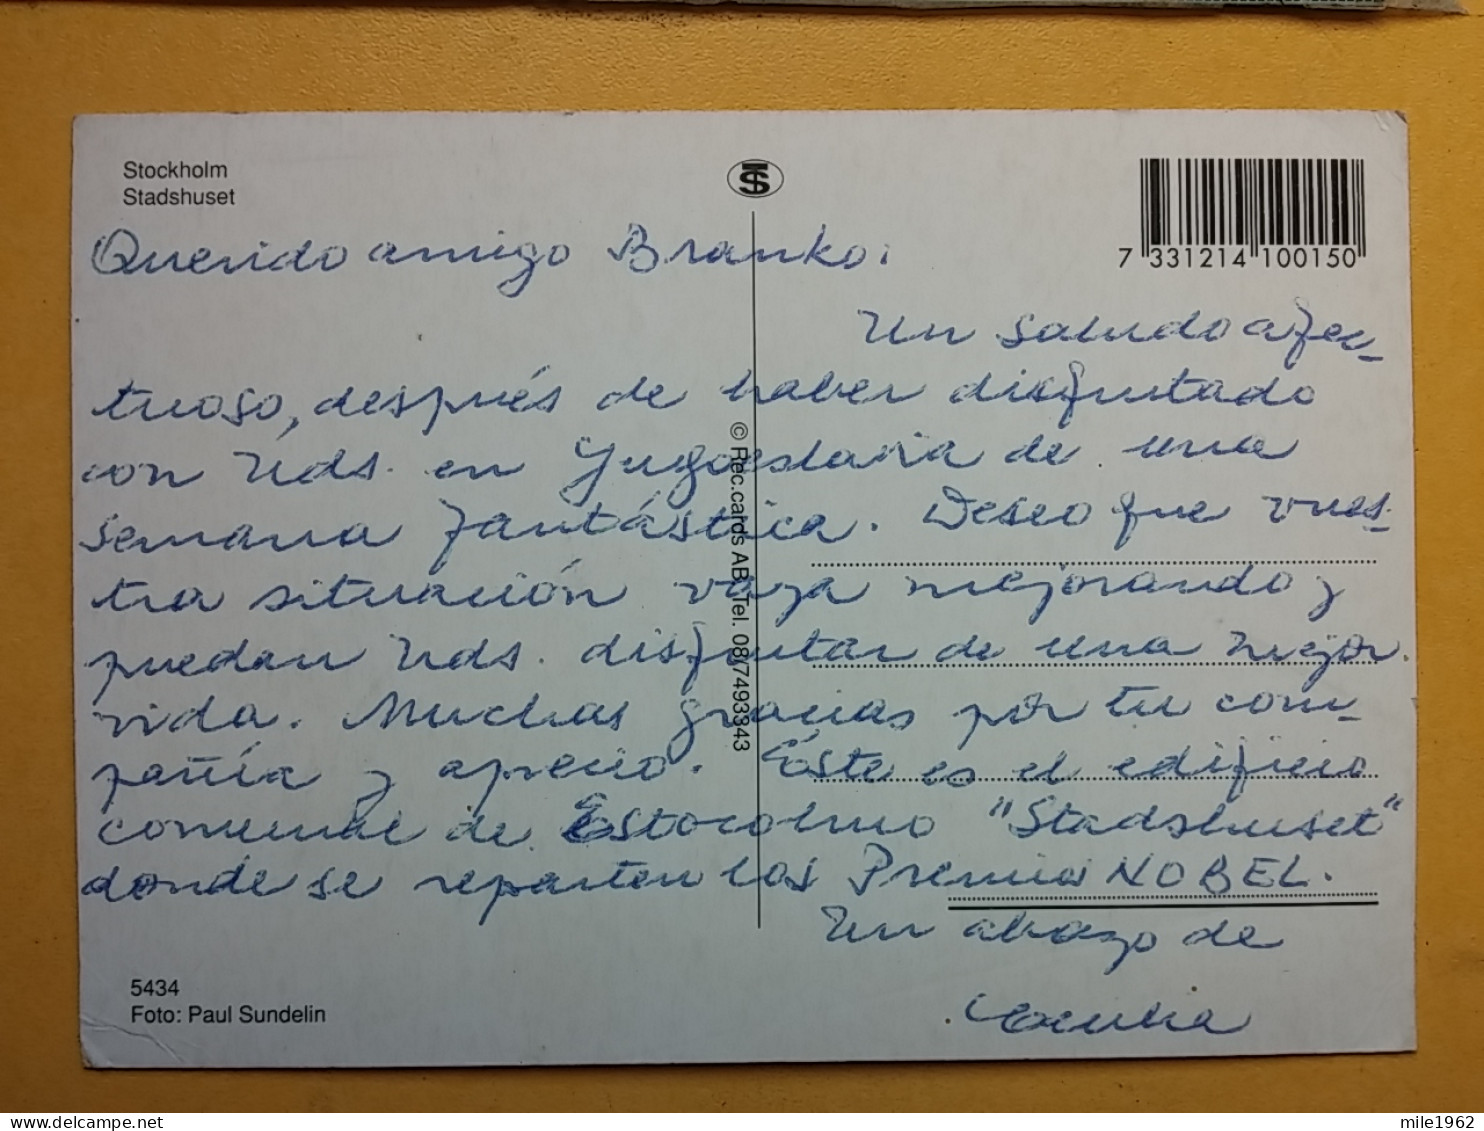 Stockholm
Stadshuset
7 331214 100150
Querido amigo Branko:
Un saludo afec-
tuoso, después de haber disfrutado
con Uds. en Yugoeslavia de una
semana fantástica. Deseo que vues-
tra situación vaya mejorando y
puedan Uds. disfrutar de una mejor
vida. Muchas gracias por tu com-
pañía y aprecio. Éste es el edificio
de Estocolmo "Stadshuset"
donde se reparten los Premios NOBEL.
Un abrazo de
© Rec.cards AB. Tel. 08/7493343
5434
Foto: Paul Sundelin
mile1962